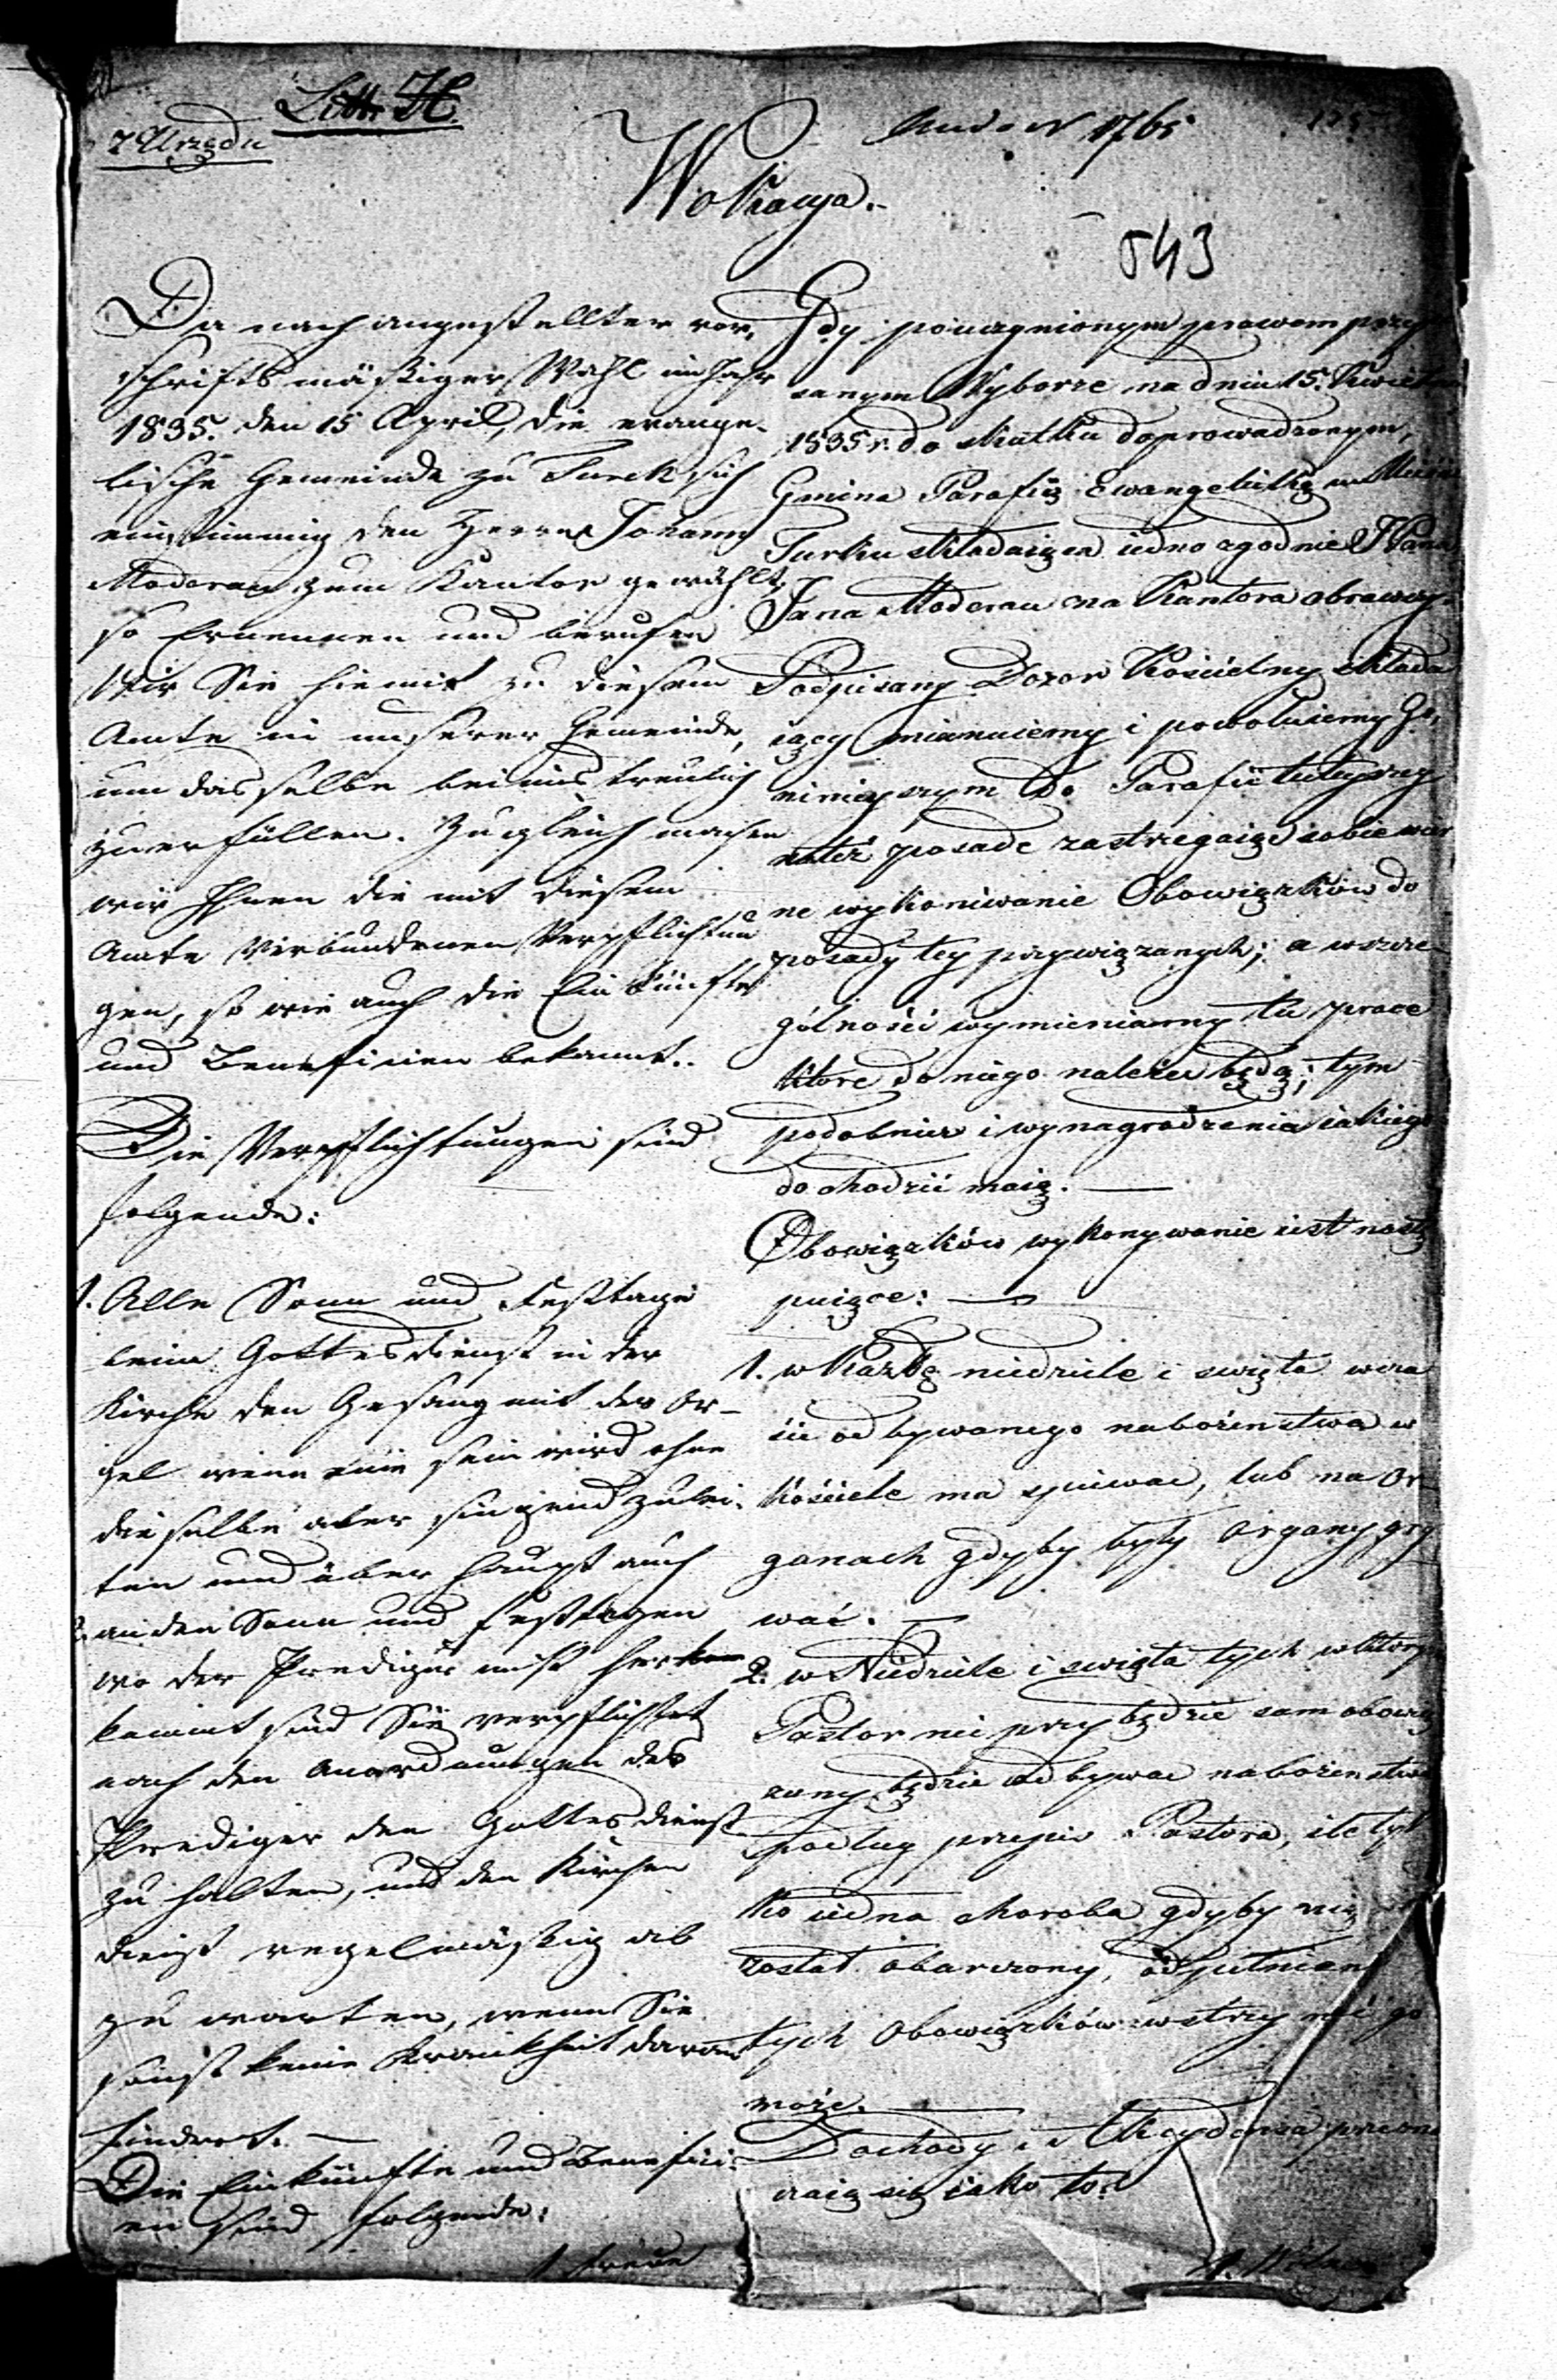 Litt. H.
z Urzędu
Ando N 1765
125
Wokacya.
543
Da nach angestellter vor,
schriftsmäßiger Wahl im Jahr
1835. den 15 April, die evange-
lische Gemeinde zu Turek sich
einstimmig den Herrn Johann
Moderau zum Kantor gewählt,
so Ernennen und berufen
Wir Sie hiemit zu diesem
Amte in unserer Gemeinde,
um dasselbe bei uns treulich
zu erfüllen. Zugleich machen
wir Ihnen die mit diesem
Amte Verbundenen Verpflichtun
gen, so wie auch die Einkünfte
und Beneficien bekannt.
Die Verpflichtungen sind
folgende:
1. Alle Sonn und Festtage
beim Gottesdienst in der
Kirche den Gesang mit der Or-
gel wenn eine sein wird ohne
dieselbe aber singend zu lei-
ten und über haupt auch
2. an den Sonn und Festtagen
wo der Prediger nicht her
kommt sind Sie verpflichtet
nach den Anordnungen des
Prediger den Gottesdienst
zu halten, und den Kirchen
dienst regelmäßig ab
zu warten, wenn Sie
sonst keine Krankheit daran
hindert. —
Die Einkünfte und Benefici-
en sind folgende:
1 freie
Gdy po uczynionym prawem przepi
sanym Wyborze na dniu 15. Kwietnia
1835 r. do skutku doprowadzonym,
Gmina Parafię Ewangelicką w Mieście
Turku składaiąca iedno zgodnie JPana
Jana Moderau na Kantora obrawszy
Podpisany Dozor Kościelny składa
iący mianuiemy i powołuiemy Go,
ninieyszym do Parafii tuteyszey
na też posadę zastrzegaiąc sobie wier
ne wykoniwanie Obowiązków do
posady tey przywiązanych; a w szcze
gólności wymieniamy tu prace
które do niego należeć będą; tym
podobnież i wynagrodzenia iakiego
dochodzić maią. —
Obowiązków wykonywanie iest nastę
puiące: —
1. w Każdę niedziele i swięta w cza
sie odbywanego nabożenstwa w
Kościele ma spiewac, lub na Or
ganach gdyby były Organy gry
wać. —
2. w Niedziele i swięta tych w ktorych
Pastor nie przybędzie sam obowią
zany będzie odbywac nabożenstwo
podług przepis Pastora, ile tyl
ko iedna choroba gdyby nią
został obarczony, od pełnienia
tych Obowiązków wstrzymać go
może. —
Dochody i Akcydensa przezna
czaią się iako to:
1. Wolne